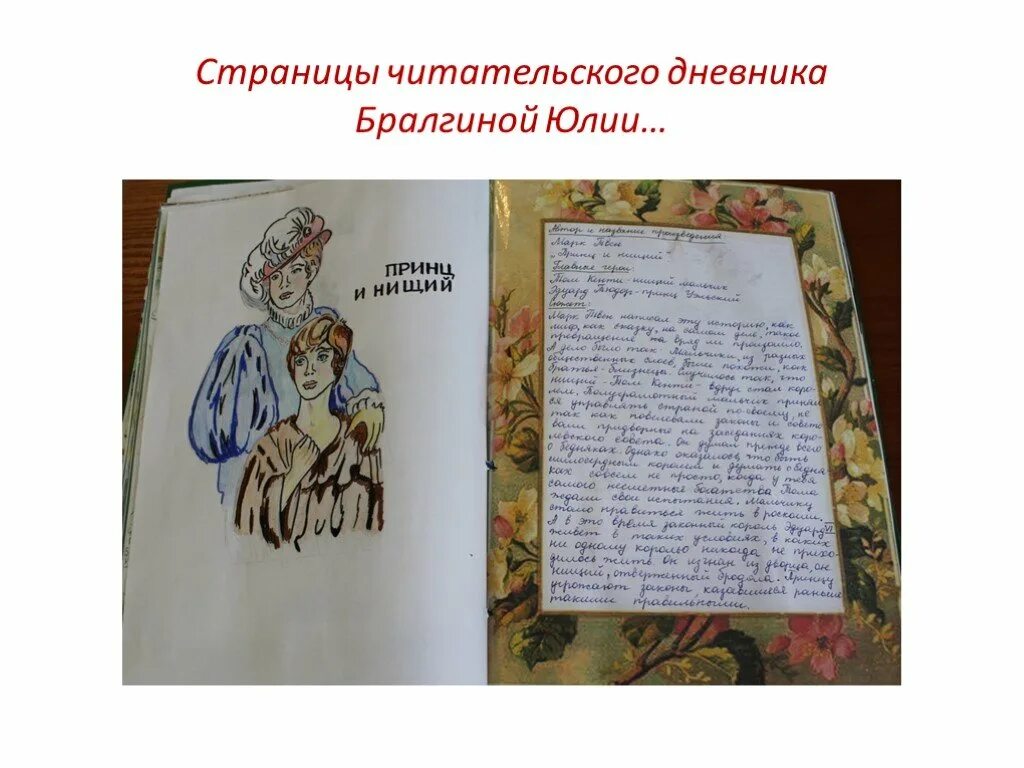 Страницы читательского дневника
Бралгиной Юлии...
ПРИНЦ
И НИЩИЙ
Автор и название произведения
Марк Твен
„Принц и нищий"
Главные герои:
Том Кенти - нищий мальчик
Эдуард Тюдор - принц Уэльский
Сюжет:
Марк Твен написал эту историю, как
миф, как сказку, на самом деле, такое
превращение то вряд ли произошло.
А дело было так. Мальчики, из разных
общественных слоев, были похожи, как
братья-близнецы. Случилось так, что
нищий - Том Кенти - вдруг стал коро-
лем. Полуграмотный мальчик принял-
ся управлять страной по-своему, не
так как повелевали законы и совето
вали придворные на заседаниях коро-
левского совета. Он думал прежде всего
о бедняках. Однако оказалось, что быть
милосердным королем и думать о бедня
ках совсем не просто, когда у тебя
самого несметные богатства. Тома
ждали свои испытания. Мальчику
стало нравиться жить в роскоши.
А в это время законный король Эдуард VI
живет в таких условиях, в каких
ни одному королю никогда не прихо-
дилось жить. Он изгнан из дворца, он
нищий, отверженный бродяга. Принцу
угрожают законы, казавшиеся раньше
такими правильными.